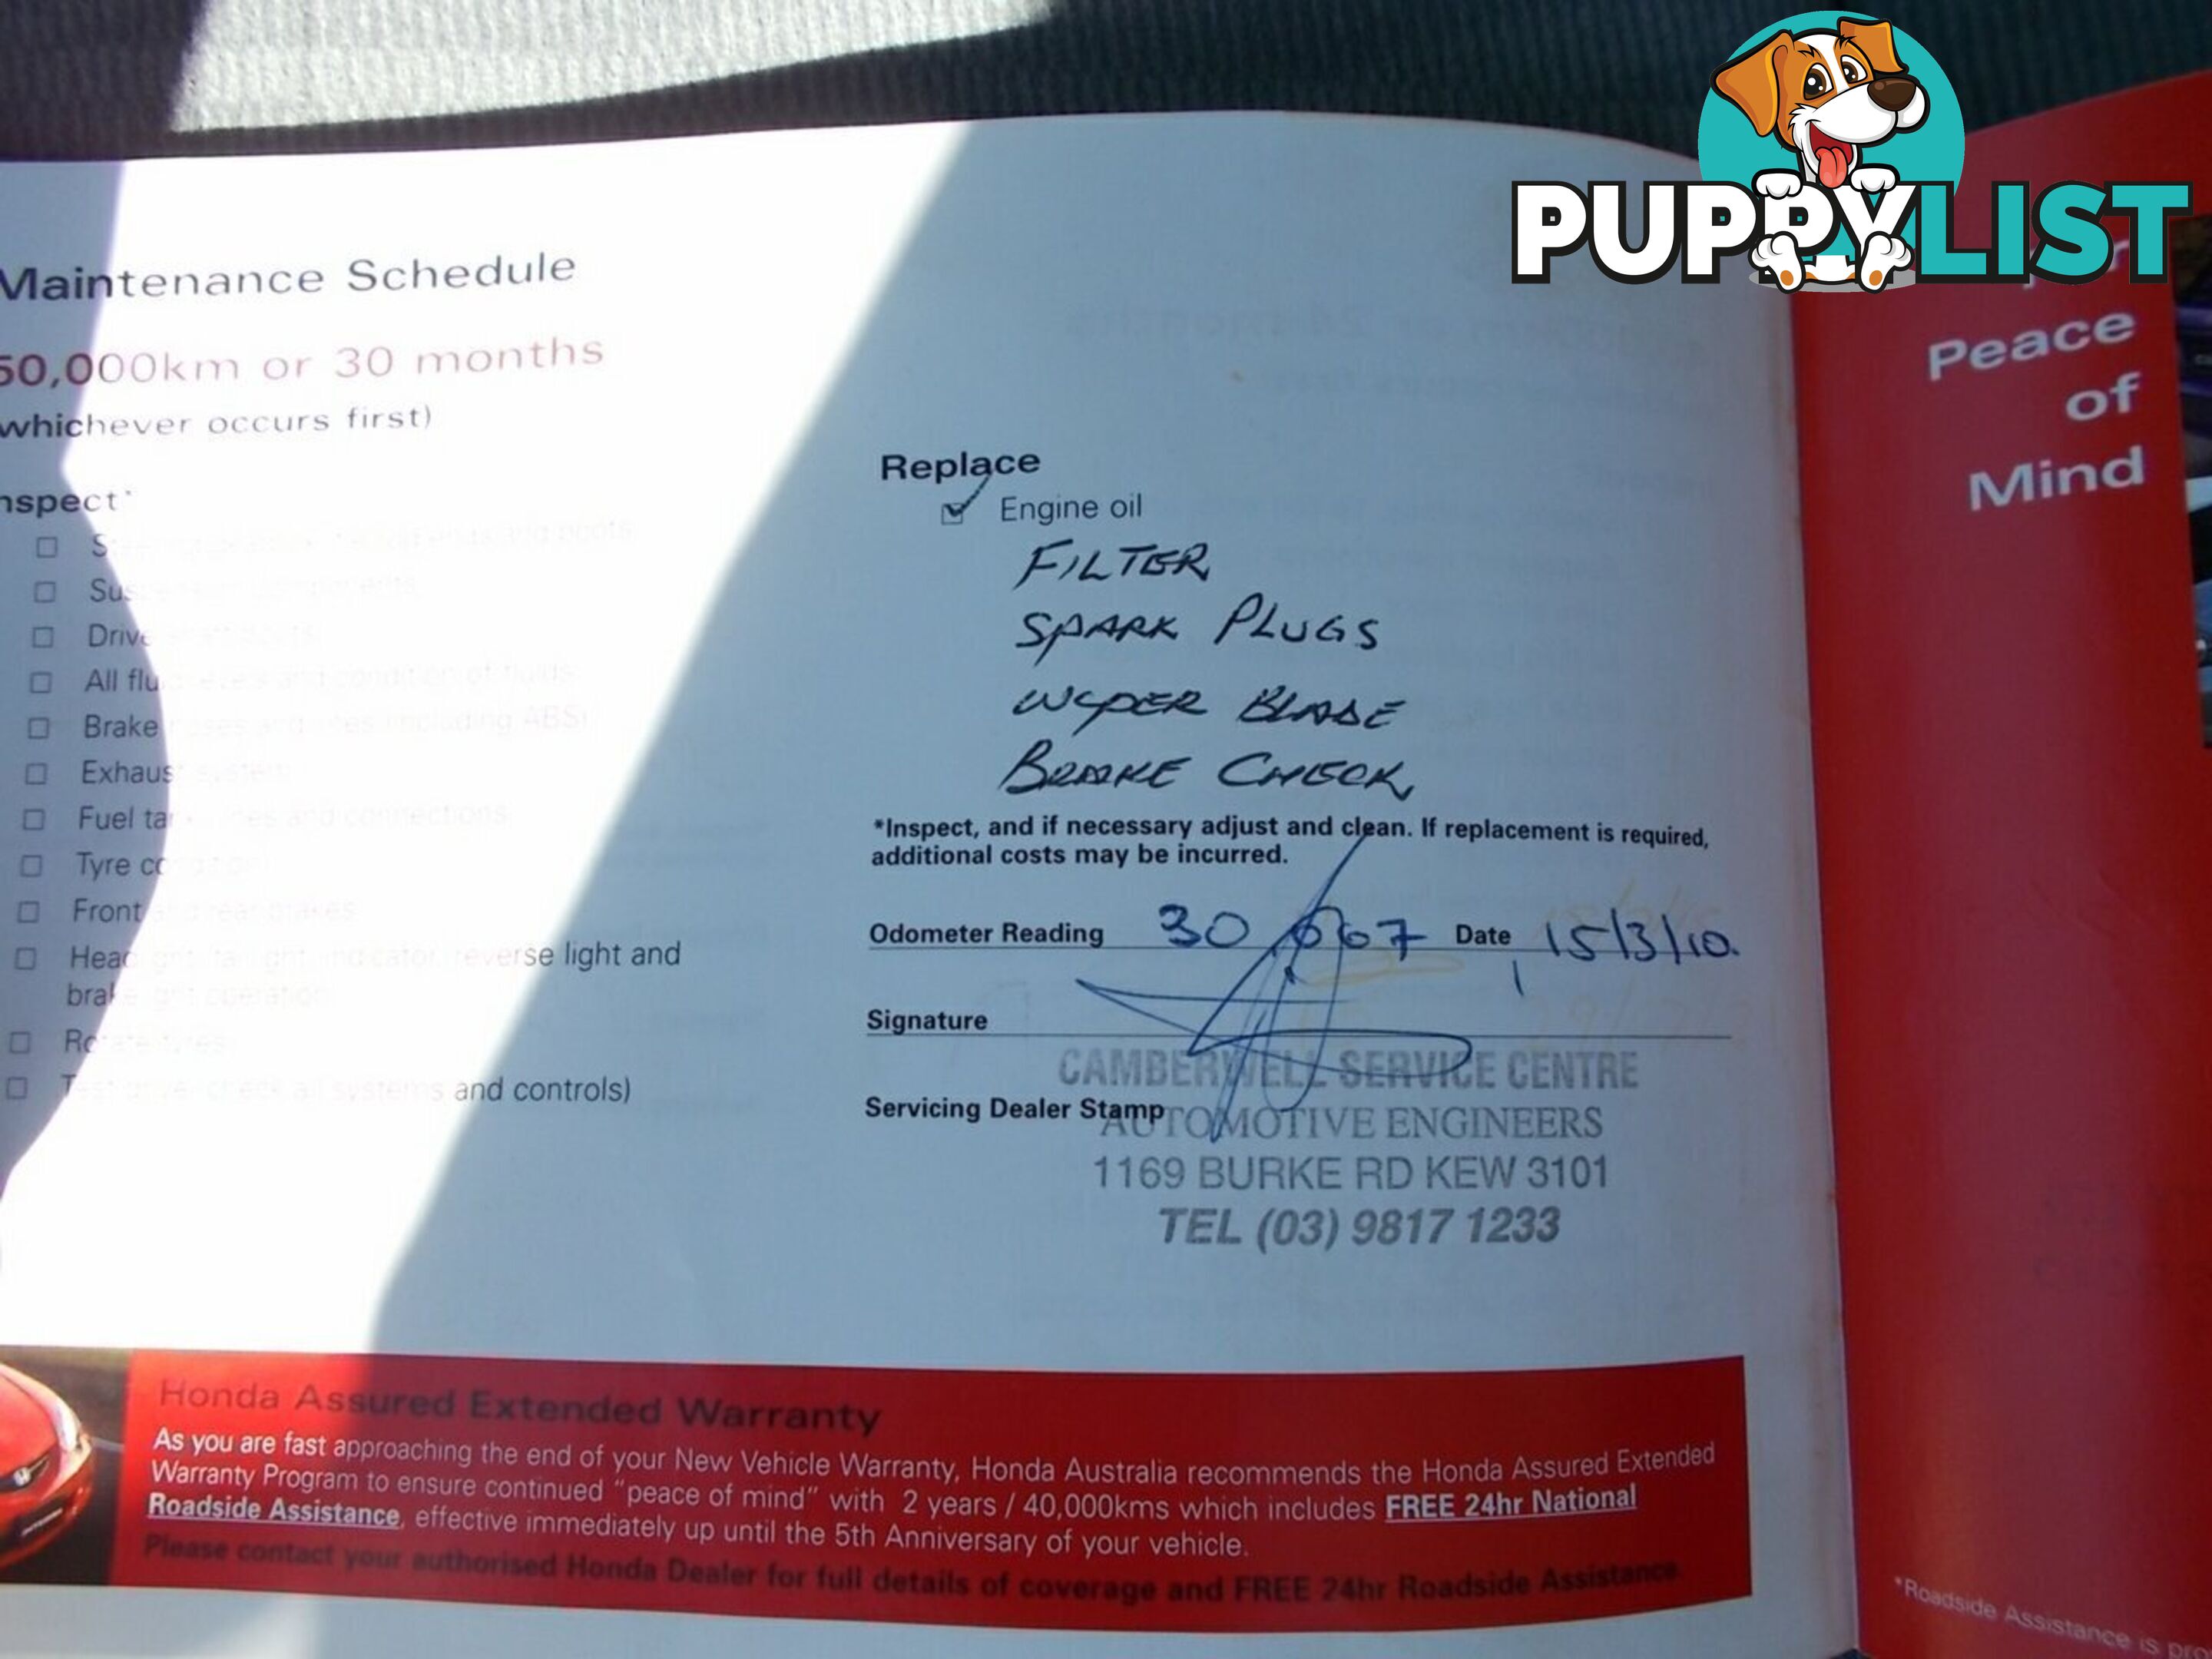 PUPPYLIST
Maintenance Schedule
50,000km or 30 months
whichever occurs first)
nspect*
All fluid levels and condition of fluids
Brake hoses and lines (including ABS)
Exhaust system
Fuel tank, lines and connections
Tyre condition
Front and rear brakes
Headlight, tail light, indicator, reverse light and
brake light operation
Rotate tyres
Test drive (check all systems and controls)
Replace
Engine oil
FILTER
SPARK PLUGS
WIPER BLADE
BRAKE CHECK
*Inspect, and if necessary adjust and clean. If replacement is required,
additional costs may be incurred.
Odometer Reading 30,067 Date 15/3/10.
Signature
CAMBERWELL SERVICE CENTRE
Servicing Dealer Stamp
AUTOMOTIVE ENGINEERS
1169 BURKE RD KEW 3101
TEL (03) 9817 1233
Honda Assured Extended Warranty
As you are fast approaching the end of your New Vehicle Warranty, Honda Australia recommends the Honda Assured Extended
Warranty Program to ensure continued "peace of mind" with 2 years / 40,000kms which includes FREE 24hr National
Roadside Assistance, effective immediately up until the 5th Anniversary of your vehicle.
Please contact your authorised Honda Dealer for full details of coverage and FREE 24hr Roadside Assistance
Peace
of
Mind
*Roadside Assistance is pro